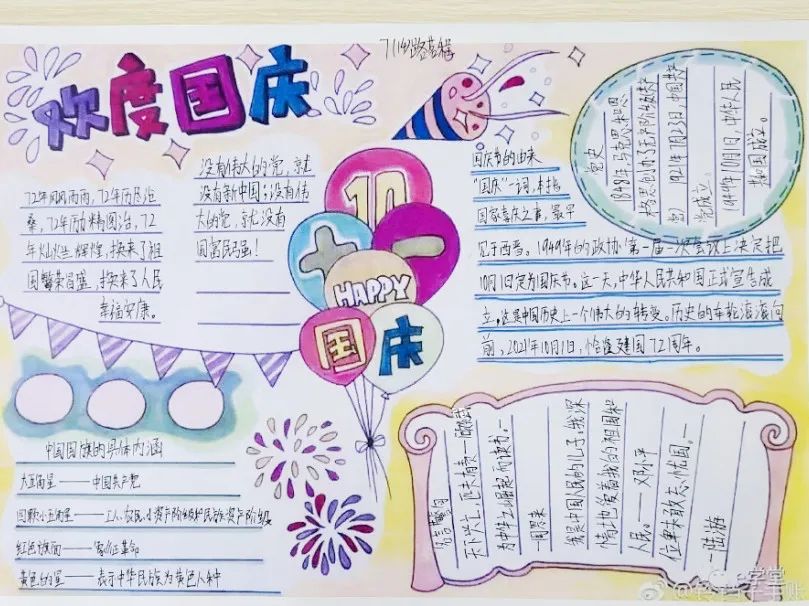 欢度国庆
72年风风雨雨,72年历尽沧
桑,72年励精图治,72
年灿烂辉煌,换来了祖
国繁荣昌盛,换来了人民
幸福安康。
没有伟大的党,就
没有新中国;没有伟
大的党,就没有
国富民强!
10
十一
HAPPY
国庆
国庆节的由来
“国庆”一词,本指
国家喜庆之事,最早
见于西晋。1949年的政协第一届一次会议上决定把
10月1日定为国庆节。这一天,中华人民共和国正式宣告成
立,这是中国历史上一个伟大的转变。历史的车轮滚滚向
前,2021年10月1日,恰逢建国72周年。
党史
1848年马克思和恩
格斯创办了无产阶级政党
1921年7月23日,中国共产
党成立。
1949年10月1日,中华人民
共和国成立。
中国国旗的具体内涵
大五角星——中国共产党
四颗小五角星——工人、农民、小资产阶级和民族资产阶级
红色旗面——象征革命
黄色的星——表示中华民族为黄色人种
名言警句
天下兴亡,匹夫有责—顾炎武
为中华之崛起而读书。—
周恩来
我是中国人民的儿子,我深
情地爱着我的祖国和
人民。——邓小平
位卑未敢忘忧国。—
陆游